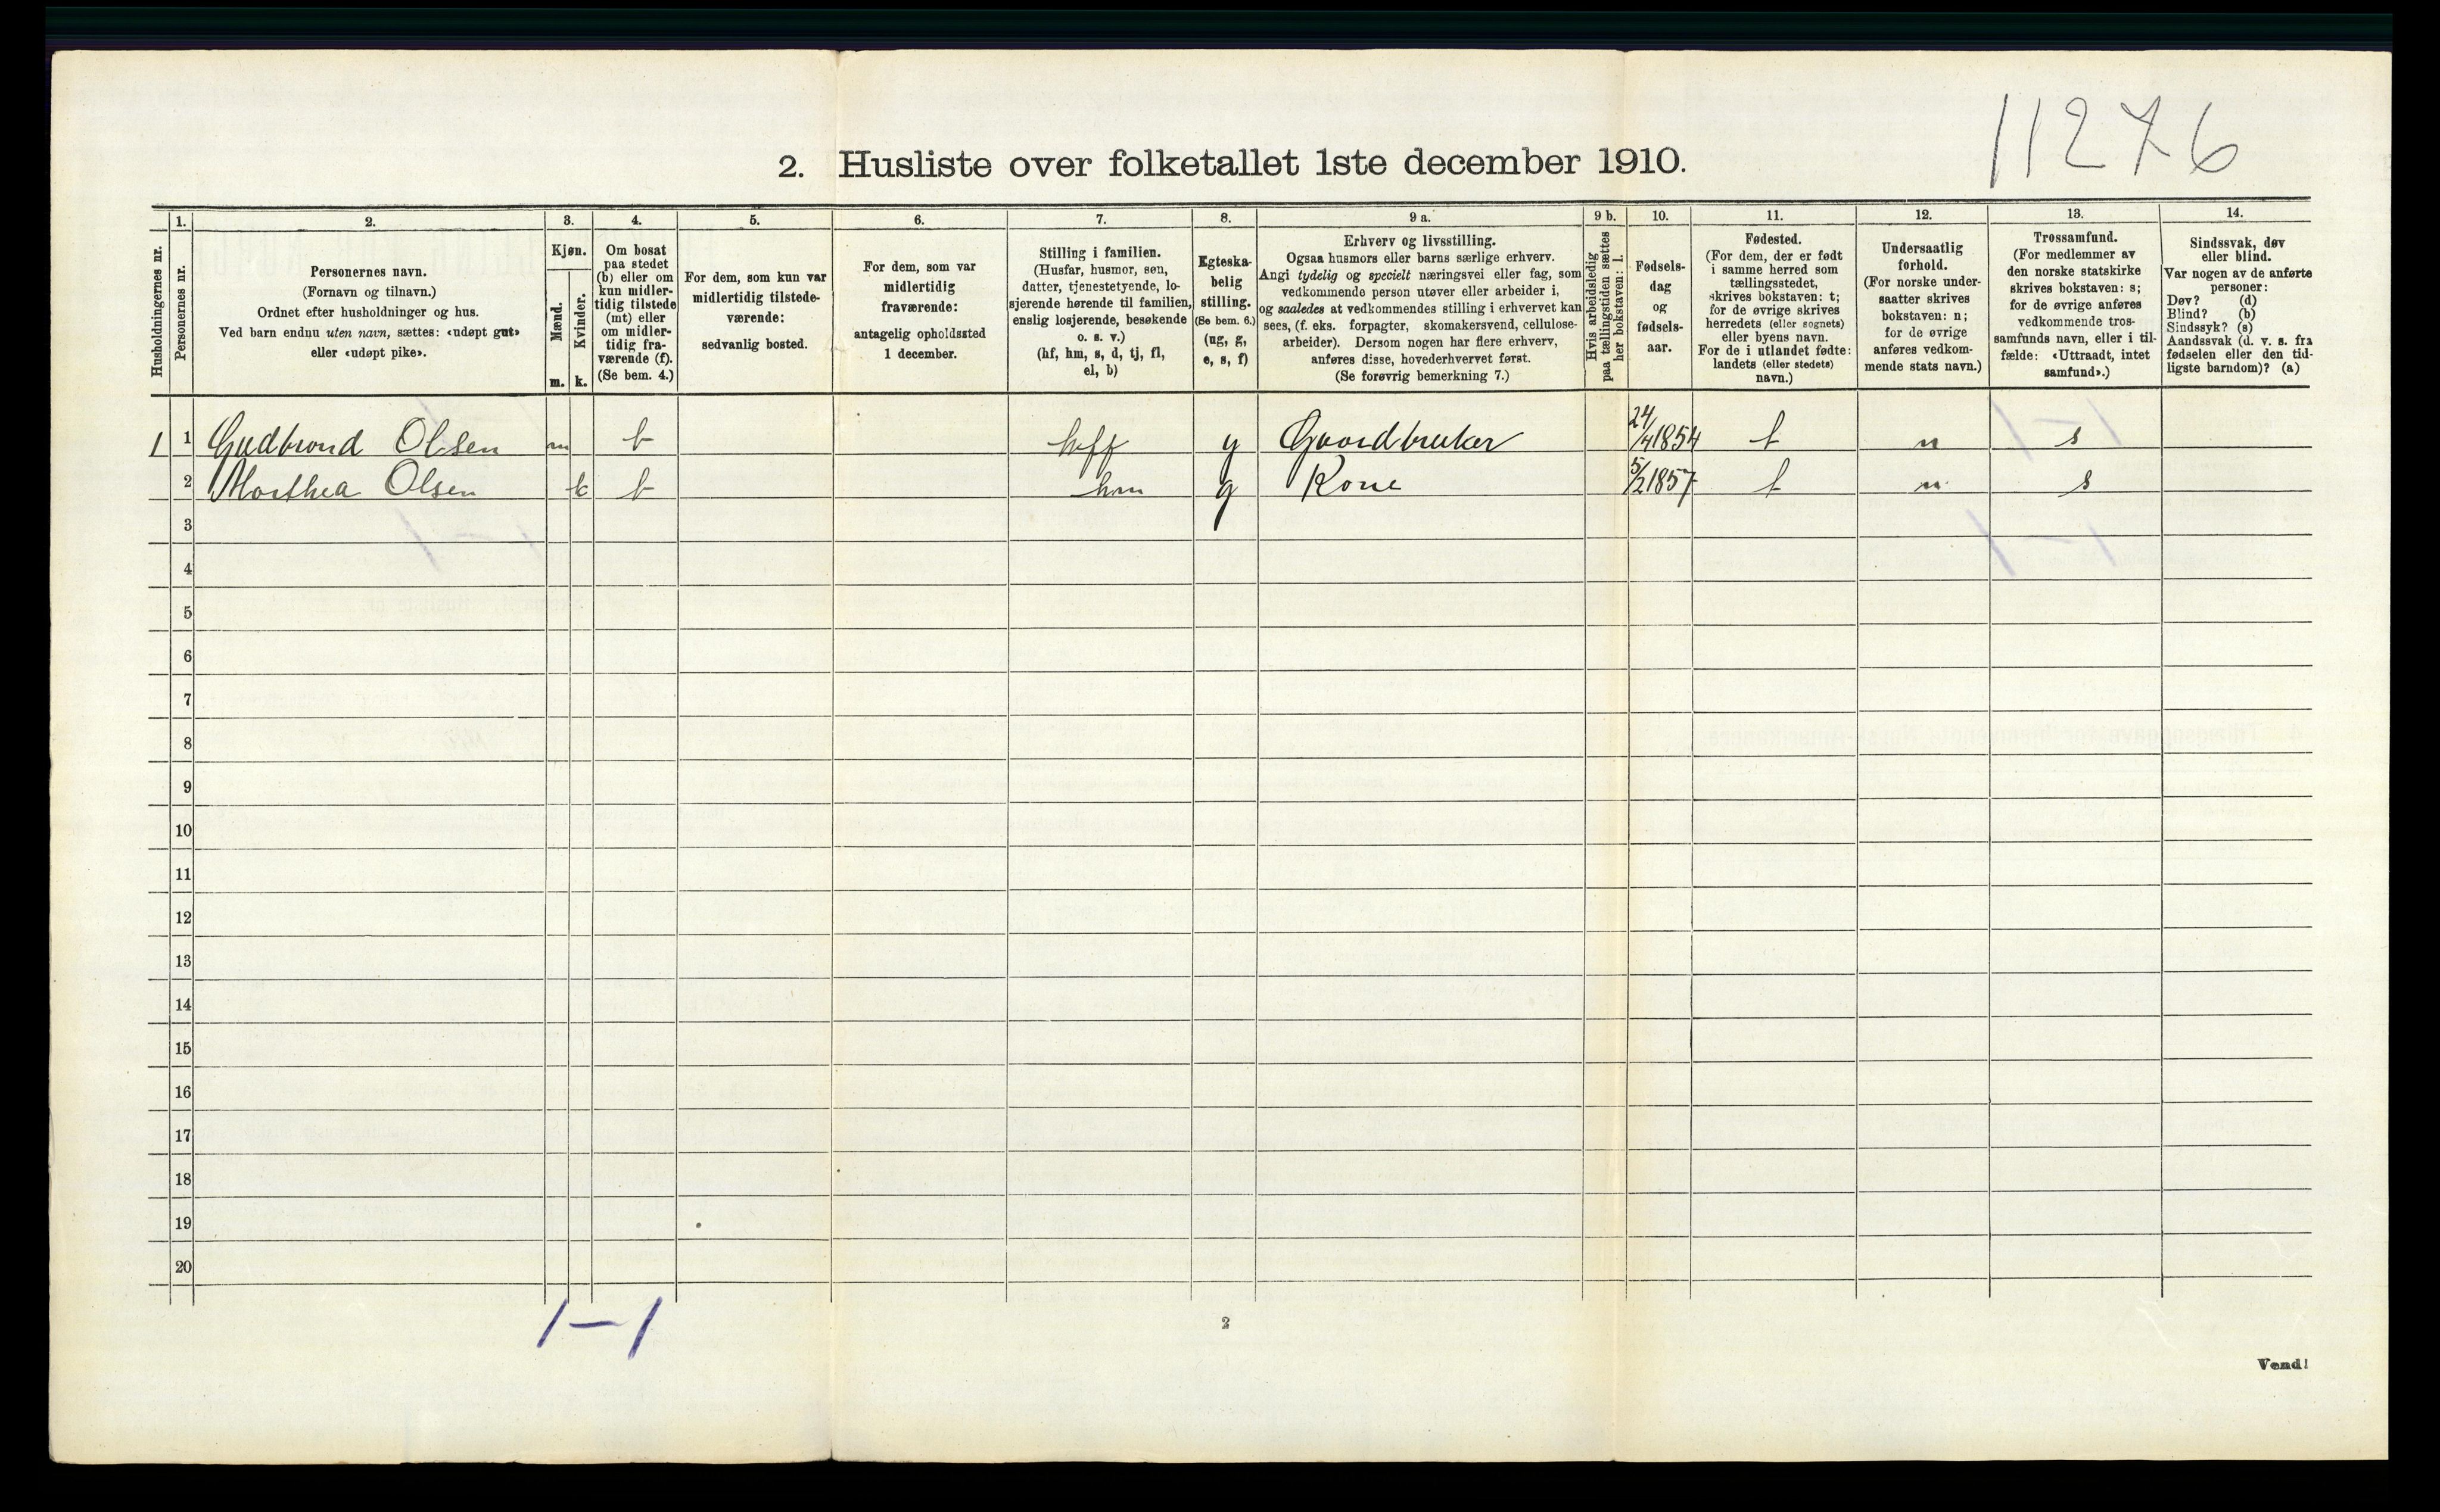 11276
2. Husliste over folketallet 1ste december 1910.
1. 2. 3. 4. 5. 6. 7. 8. 9 a. 9 b. 10. 11. 12. 13. 14.
Husholdningernes nr.
Personernes nr.
Personernes navn.
(Fornavn og tilnavn.)
Ordnet efter husholdninger og hus.
Ved barn endnu uten navn, sættes: «udøpt gut»
eller «udøpt pike».
Kjøn.
Mænd.
Kvinder.
m. k.
Om bosat
paa stedet
(b) eller om
kun midler-
tidig tilstede
(mt) eller
om midler-
tidig fra-
værende (f).
(Se bem. 4.)
For dem, som kun var
midlertidig tilstede-
værende:
sedvanlig bosted.
For dem, som var
midlertidig
fraværende:
antagelig opholdssted
1 december.
Stilling i familien.
(Husfar, husmor, søn,
datter, tjenestetyende, lo-
sjerende hørende til familien,
enslig losjerende, besøkende
o. s. v.)
(hf, hm, s, d, tj, fl,
el, b)
Egteska-
belig
stilling.
(Se bem. 6.)
(ug, g,
e, s, f)
Erhverv og livsstilling.
Ogsaa husmors eller barns særlige erhverv.
Angi tydelig og specielt næringsvei eller fag, som
vedkommende person utøver eller arbeider i,
og saaledes at vedkommendes stilling i erhvervet kan
sees, (f. eks. forpagter, skomakersvend, cellulose-
arbeider). Dersom nogen har flere erhverv,
anføres disse, hovederhvervet først.
(Se forøvrig bemerkning 7.)
Hvis arbeidsledig
paa tællingstiden sættes
her bokstaven: l.
Fødsels-
dag
og
fødsels-
aar.
Fødested.
(For dem, der er født
i samme herred som
tællingsstedet,
skrives bokstaven: t;
for de øvrige skrives
herredets (eller sognets)
eller byens navn.
For de i utlandet fødte:
landets (eller stedets)
navn.)
Undersaatlig
forhold.
(For norske under-
saatter skrives
bokstaven: n;
for de øvrige
anføres vedkom-
mende stats navn.)
Trossamfund.
(For medlemmer av
den norske statskirke
skrives bokstaven: s;
for de øvrige anføres
vedkommende tros-
samfunds navn, eller i til-
fælde: «Uttraadt, intet
samfund».)
Sindssvak, døv
eller blind.
Var nogen av de anførte
personer:
Døv? (d)
Blind? (b)
Sindssyk? (s)
Aandssvak (d. v. s. fra
fødselen eller den tid-
ligste barndom)? (a)
1 1 Gudbrond Olsen m b hff g Gaardbruker 24/4 1854 t n s
2 Marthea Olsen k b hm g Kone 5/2 1857 t n s
3
4
5
6
7
8
9
10
11
12
13
14
15
16
17
18
19
20
1-1
2
Vend!